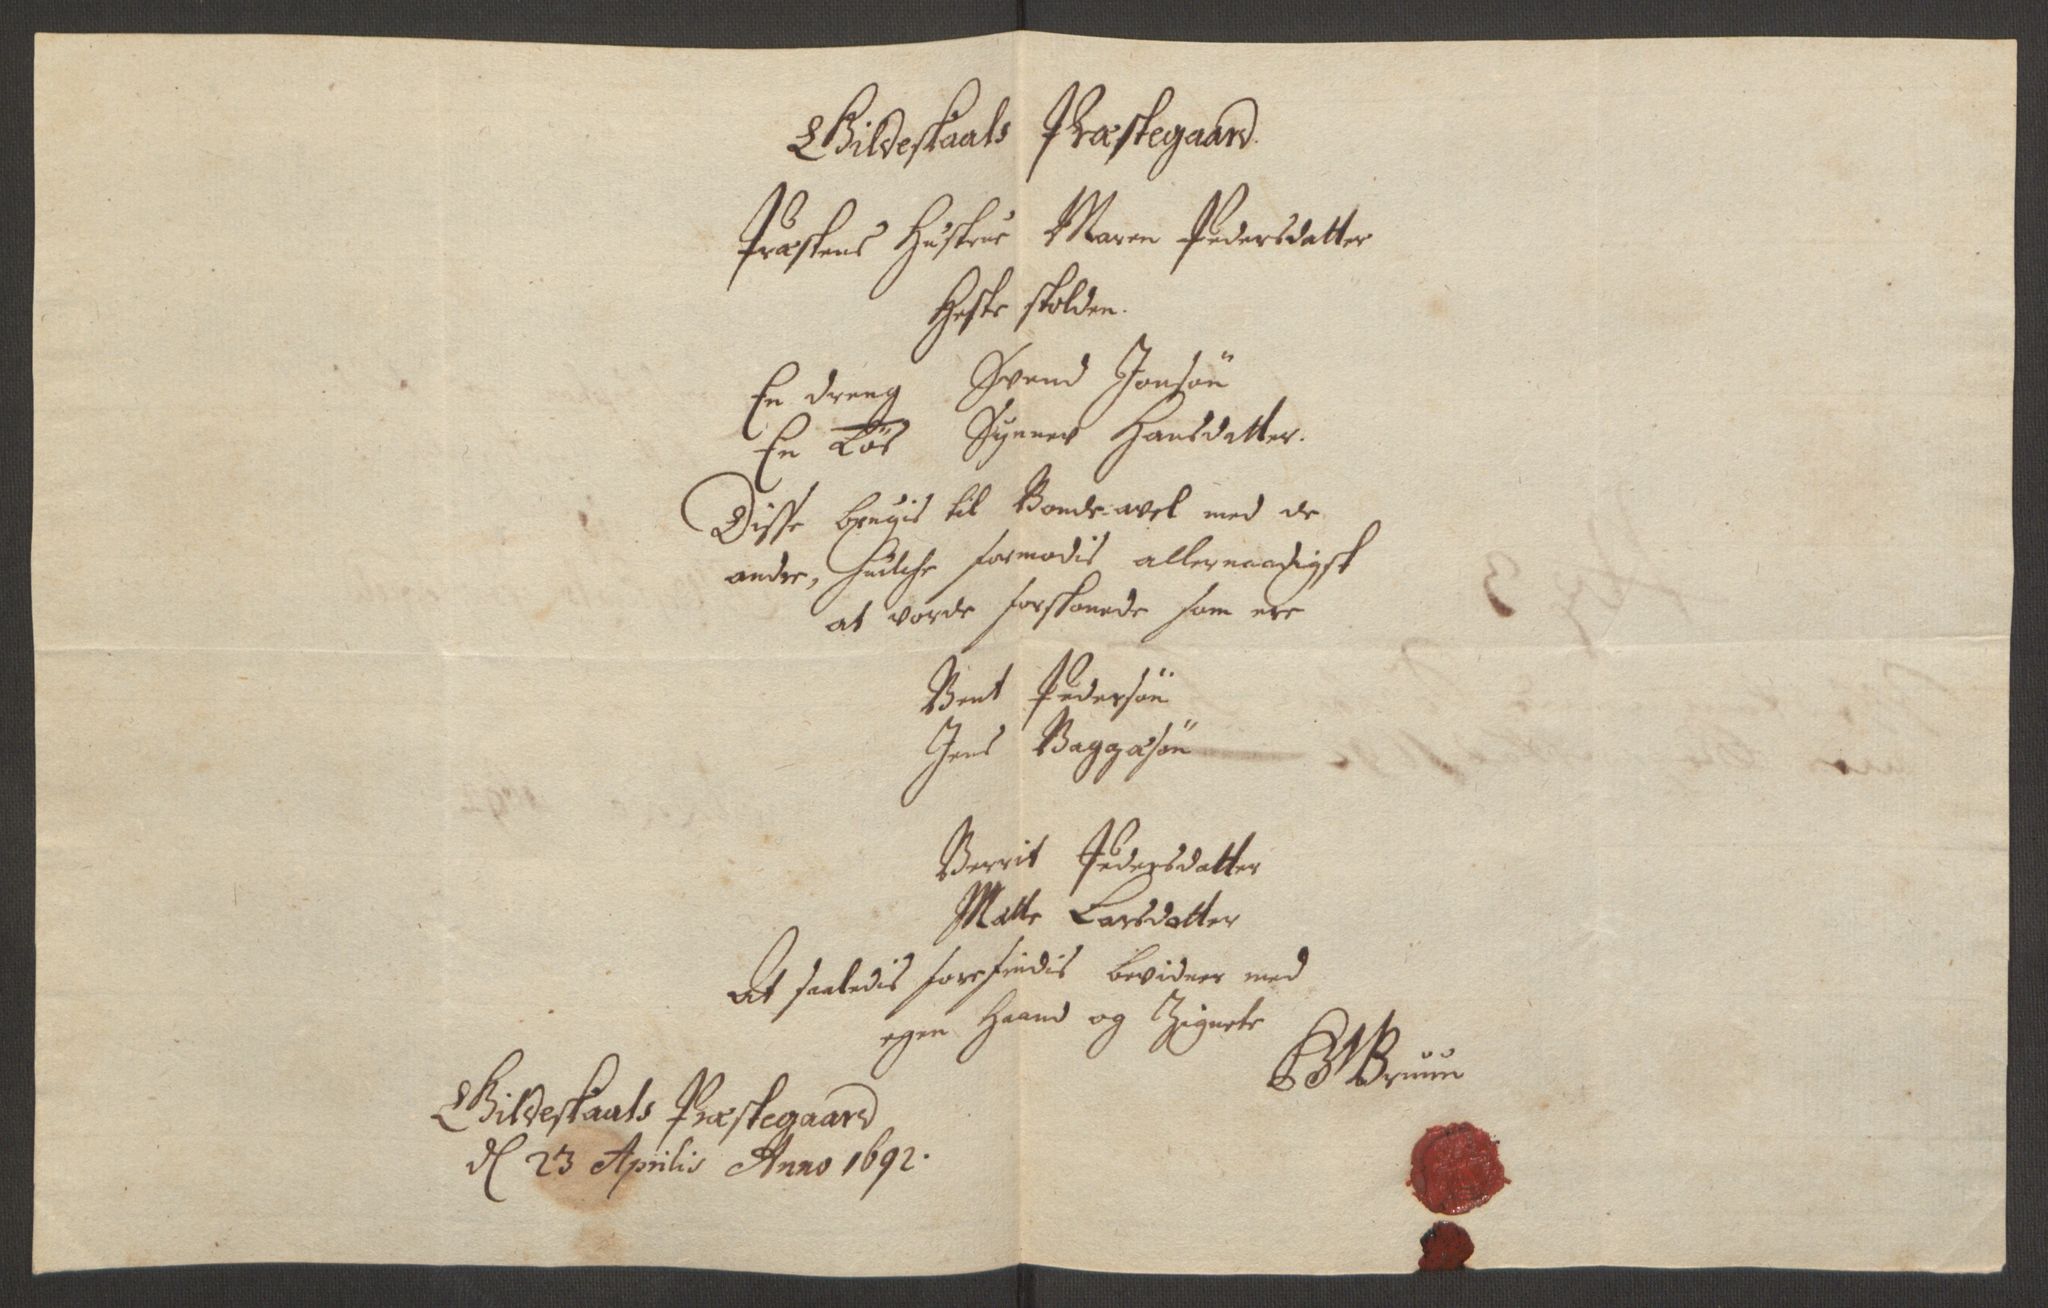 Gildeskaals Præstegaard.
Præstens Hustrue Maren Pedersdatter
Hosis skolden.
En dreng Svend Jonsøn
En Tøs Synnev Hansdatter.
Disse brugis til Bonde-avel med de
andre, huilche formodis allernaadigst
at vorde forskonede som ere
Bent Pedersøn
Jens Baggæsøn
Berrit Pedersdatter
Mætte Larsdatter
At saaledis forefindis bevidner med
egen Haand og Zignete
Bruun
Gildeskaals Præstegaard
d 23 Aprilis Anno 1692.